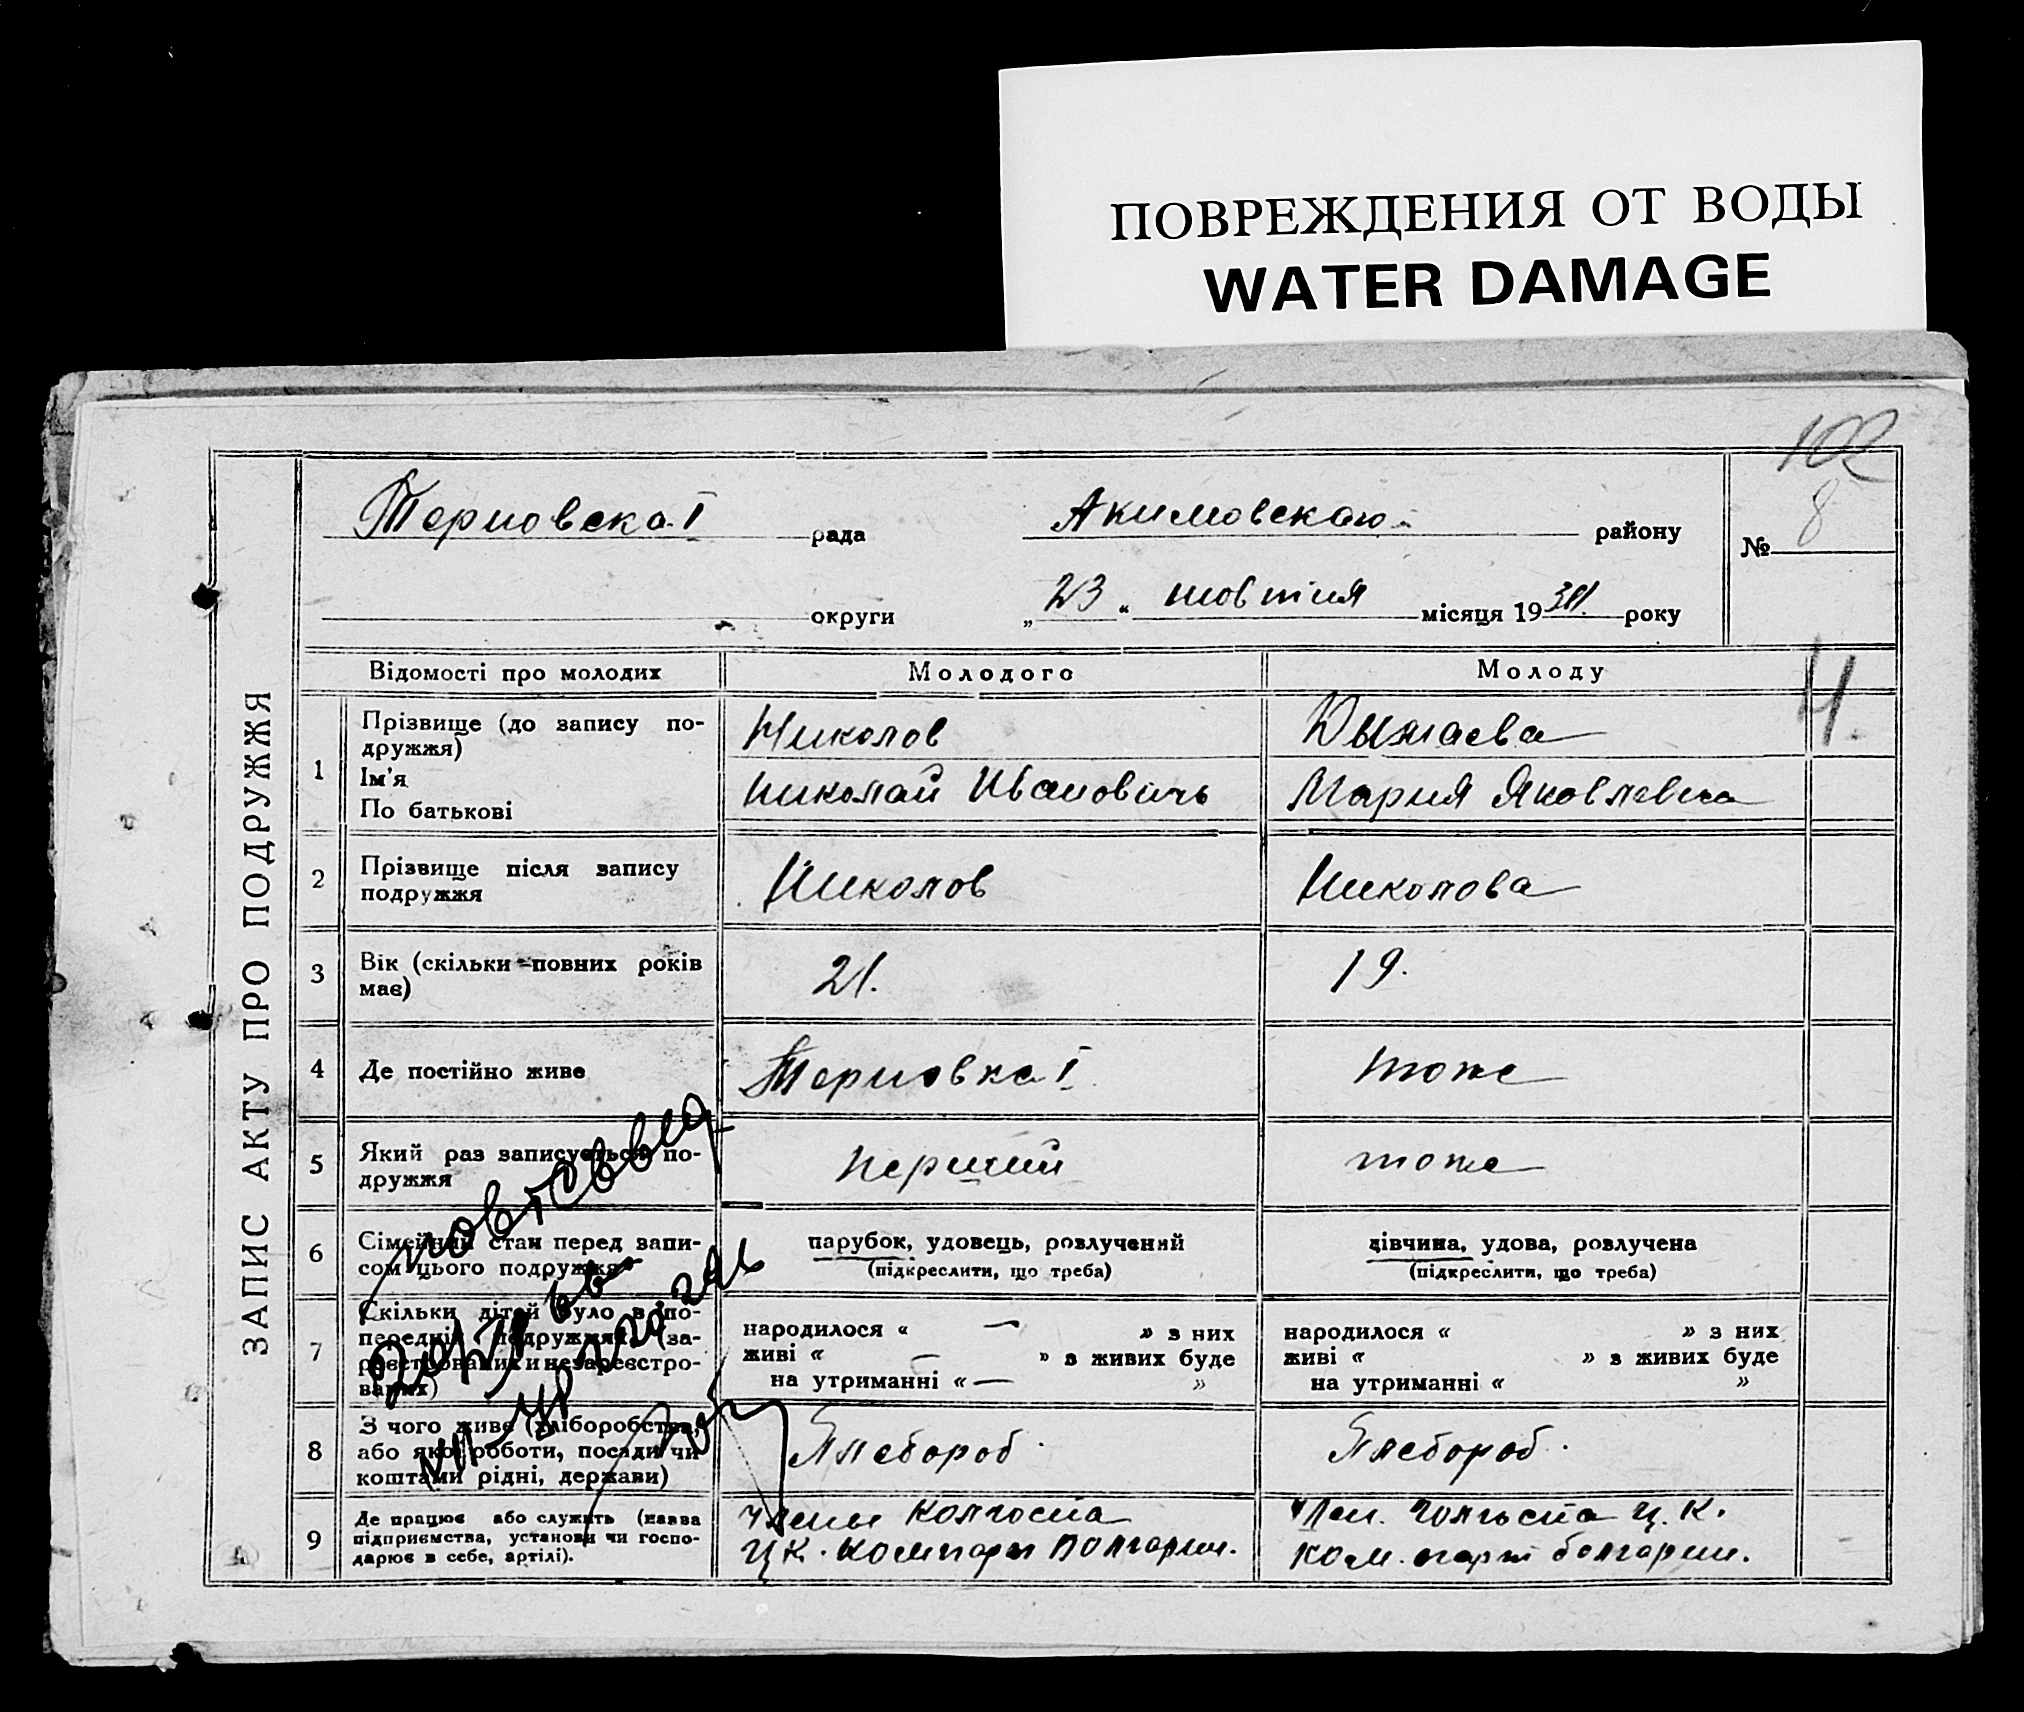 ПОВРЕЖДЕНИЯ ОТ ВОДЫ
WATER DAMAGE
102
ЗАПИС АКТУ ПРО ПОДРУЖЖЯ
Терновска I рада Акимовскаго району № 8
округи „23“ жовтня місяця 19 року
Відомості про молодих Молодого Молоду
1 Прізвище (до запису по-
дружжя)
Ім'я
По батькові
Николов
Николай Ивановичь
Мария Яковлевна
2 Прізвище після запису
подружжя
Николов Николова
3 Вік (скільки повних років
має)
21. 19.
4 Де постійно живе Терновка I тоже
5 Який раз записується по-
дружжя
перший тоже
6 Сімейний стан перед запи-
сом цього подружжя
парубок, удовець, розлучений
(підкреслити, що треба)
дівчина, удова, розлучена
(підкреслити, що треба)
7 Скільки дітей було в по-
передніх подружжях (за-
реєстрованих и незареєстро-
ваних)
народилося « — » з них
живі « — » з живих буде
на утриманні « — »
народилося « » з них
живі « » з живих буде
на утриманні « »
8 З чого живе (хліборобства,
або якої роботи, посади чи
коштами рідні, держави)
Хлебороб. Хлебороб.
9 Де працює або служить (назва
підприємства, установи чи госпо-
дарює в себе, артілі).
члены колгоспа
ЦК. компарт Болгарии.
Член. колгоспа Ц.К.
ком. парт болгарии.